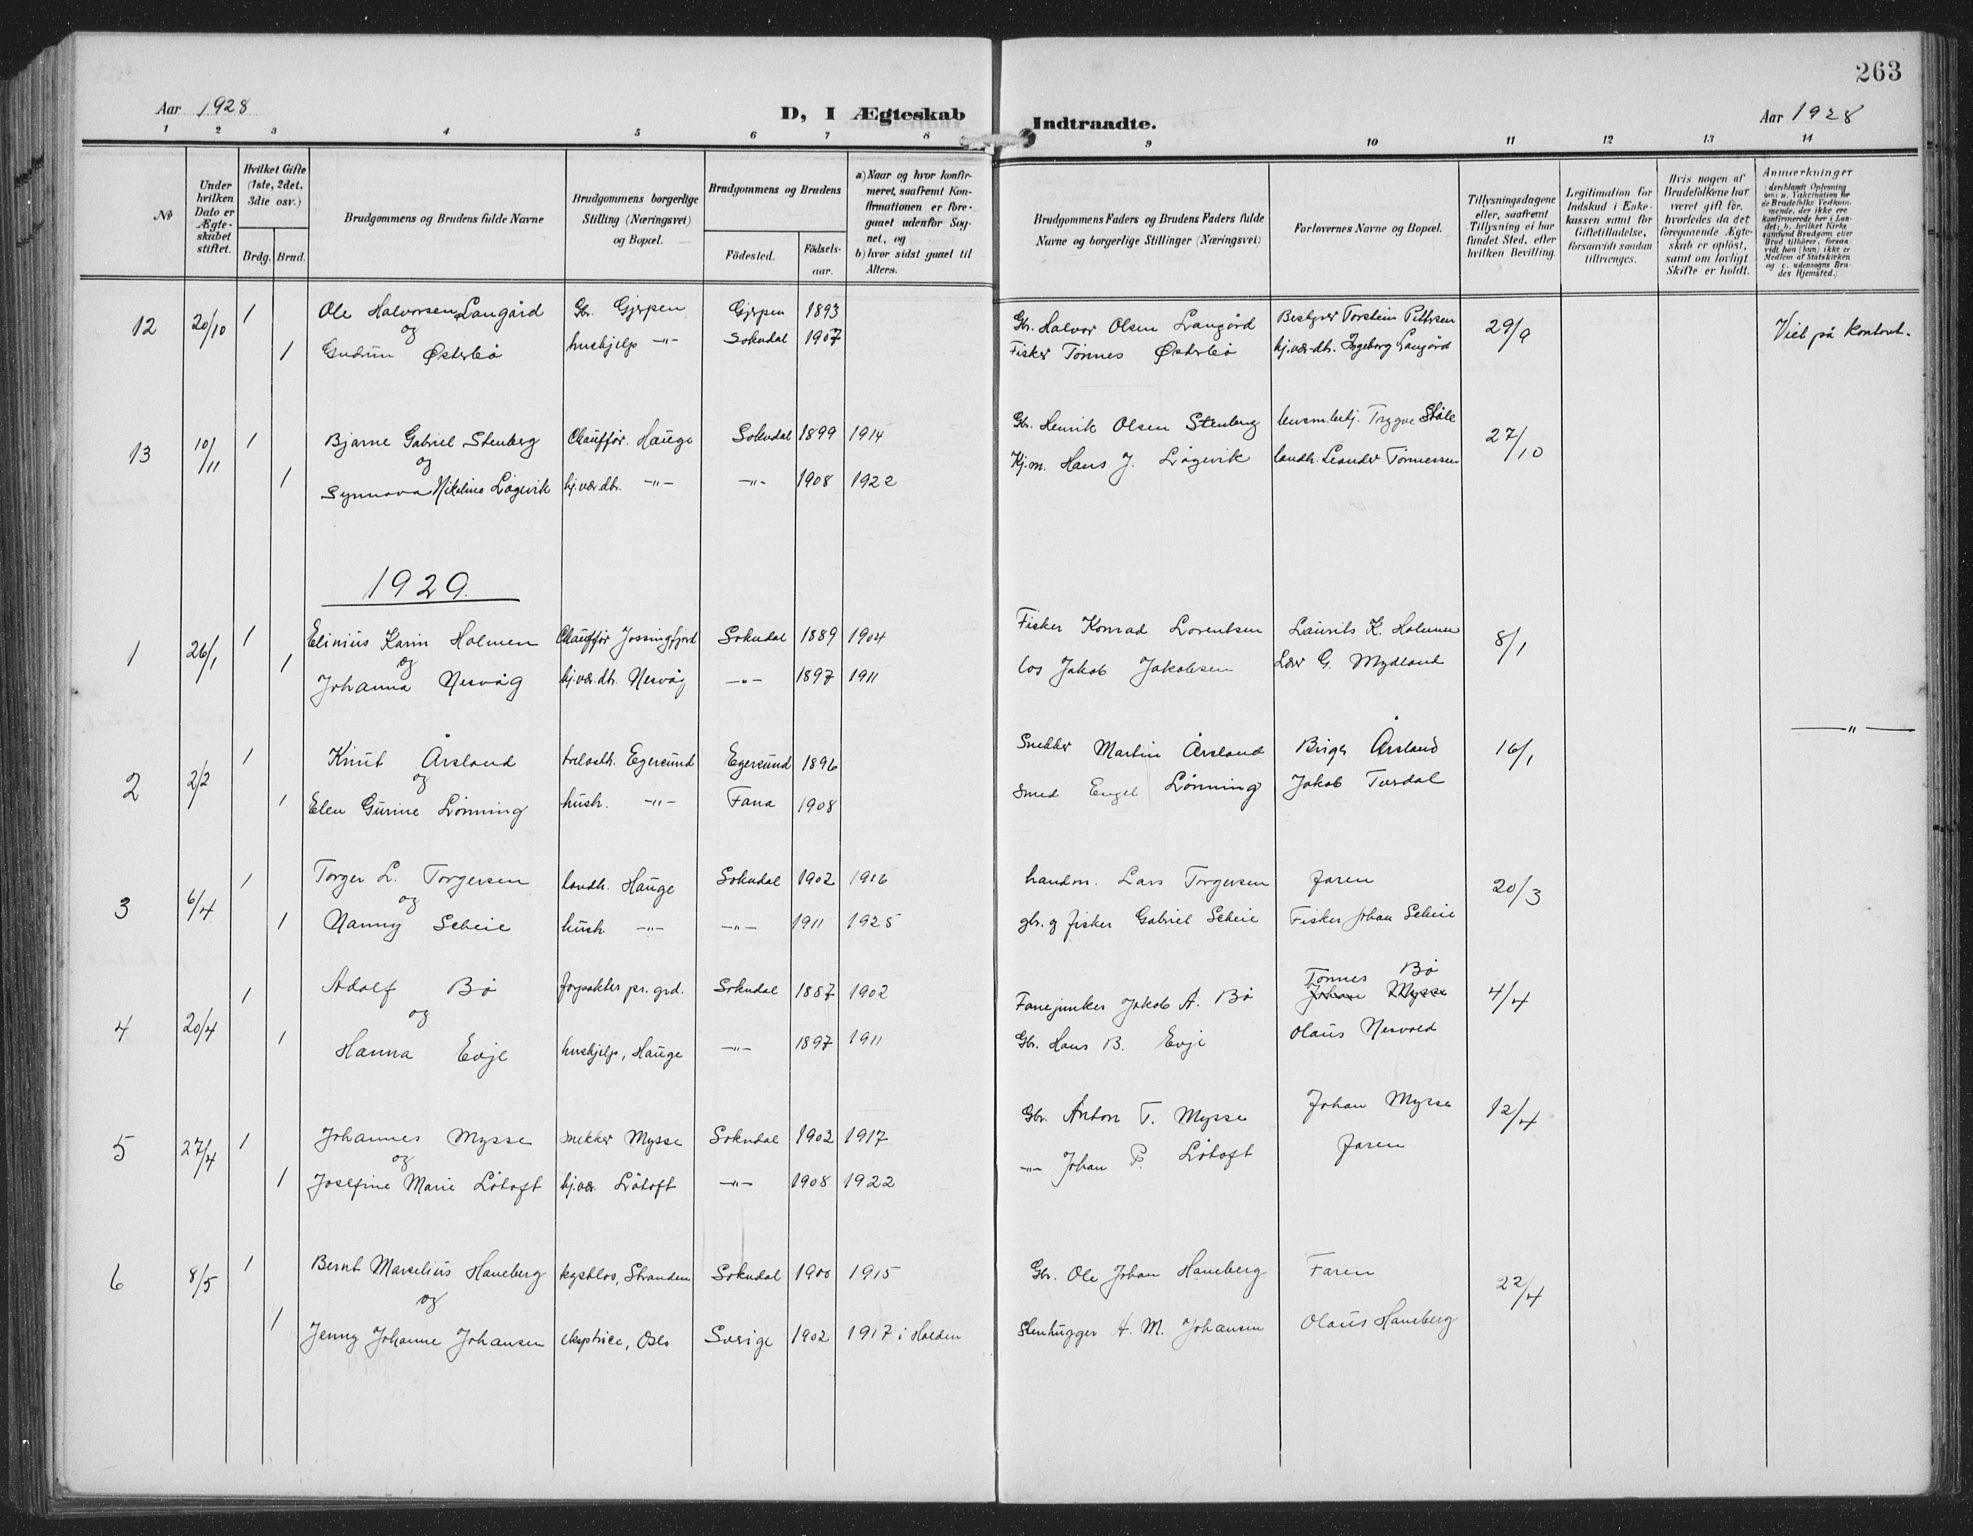 263
Aar 1928
D, I Ægteskab
Indtraadte.
Aar 1928
1 2 3 4 5 6 7 8 9 10 11 12 13 14
№
Under hvilken Dato er Ægteskabet stiftet.
Hvilket Gifte (1ste, 2det, 3die osv.)
Brdg. Brud.
Brudgommens og Brudens fulde Navne
Brudgommens borgerlige Stilling (Næringsvei) og Bopæl.
Brudgommens og Brudens
Födested. Födselsaar.
a) Naar og hvor konfirmeret, saafremt Konfirmationen er foregaaet udenfor Sognet, og
b) hvor sidst gaaet til Alters.
Brudgommens Faders og Brudens Faders fulde Navne og borgerlige Stillinger (Næringsvei)
Forlovernes Navne og Bopæl.
Tillysningsdagene eller, saafremt Tillysning ei har fundet Sted, efter hvilken Bevilling.
Legitimation for Indskud i Enkekassen samt for Giftetilladelse, forsaavidt saadan tiltrænges.
Hvis nogen af Brudefolkene har været gift før, hvorledes da det foregaaende Ægteskab er opløst, samt om lovligt Skifte er holdt.
Anmærkninger
12 20/10 1 Ole Halvorsen Langård Gbr. Gjerpen Gjerpen 1893 Gbr. Halvor Olsen Langård Bestyrer Torstein Pettersen 29/9 Viet på kontoret.
og
1 Gudrun Østerbø hushjelp -"- Sokndal 1907 Fisker Tønnes Østerbø hj.vær.dtr. Ingeborg Langård
13 10/11 1 Bjarne Gabriel Stenberg Chauffør. Hauge Sokndal 1899 1914 Gbr. Henrik Olsen Stenberg lensm.betj. Trygve Ståle 27/10
og
1 Synnøva Nikoline Løgevik hj.vær.dtr. -"- -"- 1908 1922 Kj.m. Hans J. Løgevik landh. Leander Tønnessen
1929.
1 26/1 1 Elinius Karin Holmen Chauffør Jossingfjord Sokndal 1889 1904 Fisker Konrad Lorentsen Laurits K. Holmen 8/1
og
1 Johanna Nesvåg hj.vær.dtr. Nesvåg -"- 1897 1911 los Jakob Jakobsen Lærer G. Mydland
2 2/2 1 Knut Årsland trelasth. Egersund Egersund 1896 Snekker Martin Årsland Birger Årsland 16/1 -"-
og
1 Elen Gurine Lønning hush. -"- Fana 1908 smed Engel Lønning Jakob Turdal
3 6/4 1 Torger L. Torgersen landh. Hauge Sokndal 1902 1916 handm. Lars Torgersen Faren 20/3
og
1 Nanny Scheie hush. -"- -"- 1911 1925 gbr. og fisker Gabriel Scheie Fisker Johan Scheie
4 20/4 1 Adolf Bø forpakter pr. grd. Sokndal 1887 1902 Fanejunker Jakob A. Bø Tønnes Bø 4/4
Johan Mysse
og
1 Hanna Evje hushjelp, Hauge -"- 1897 1911 Gbr. Hans B. Evje Olaus Nesvold
5 27/4 1 Johannes Mysse snekker Mysse Sokndal 1902 1917 Gbr. Anton T. Mysse Johan Mysse 12/4
og
1 Josefine Marie Løtoft hj.vær. Løtoft -"- 1908 1922 -"- Johan P. Løtoft Faren
6 8/5 1 Bernt Marselius Haneberg kystlos, Stranden Sokndal 1900 1915 Gbr. Ole Johan Haneberg Faren 22/4
og
1 Jenny Johanne Johansen eksptrice, Oslo Sverige 1902 1917 i Halden Stenhugger A. M. Johansen Olaus Haneberg